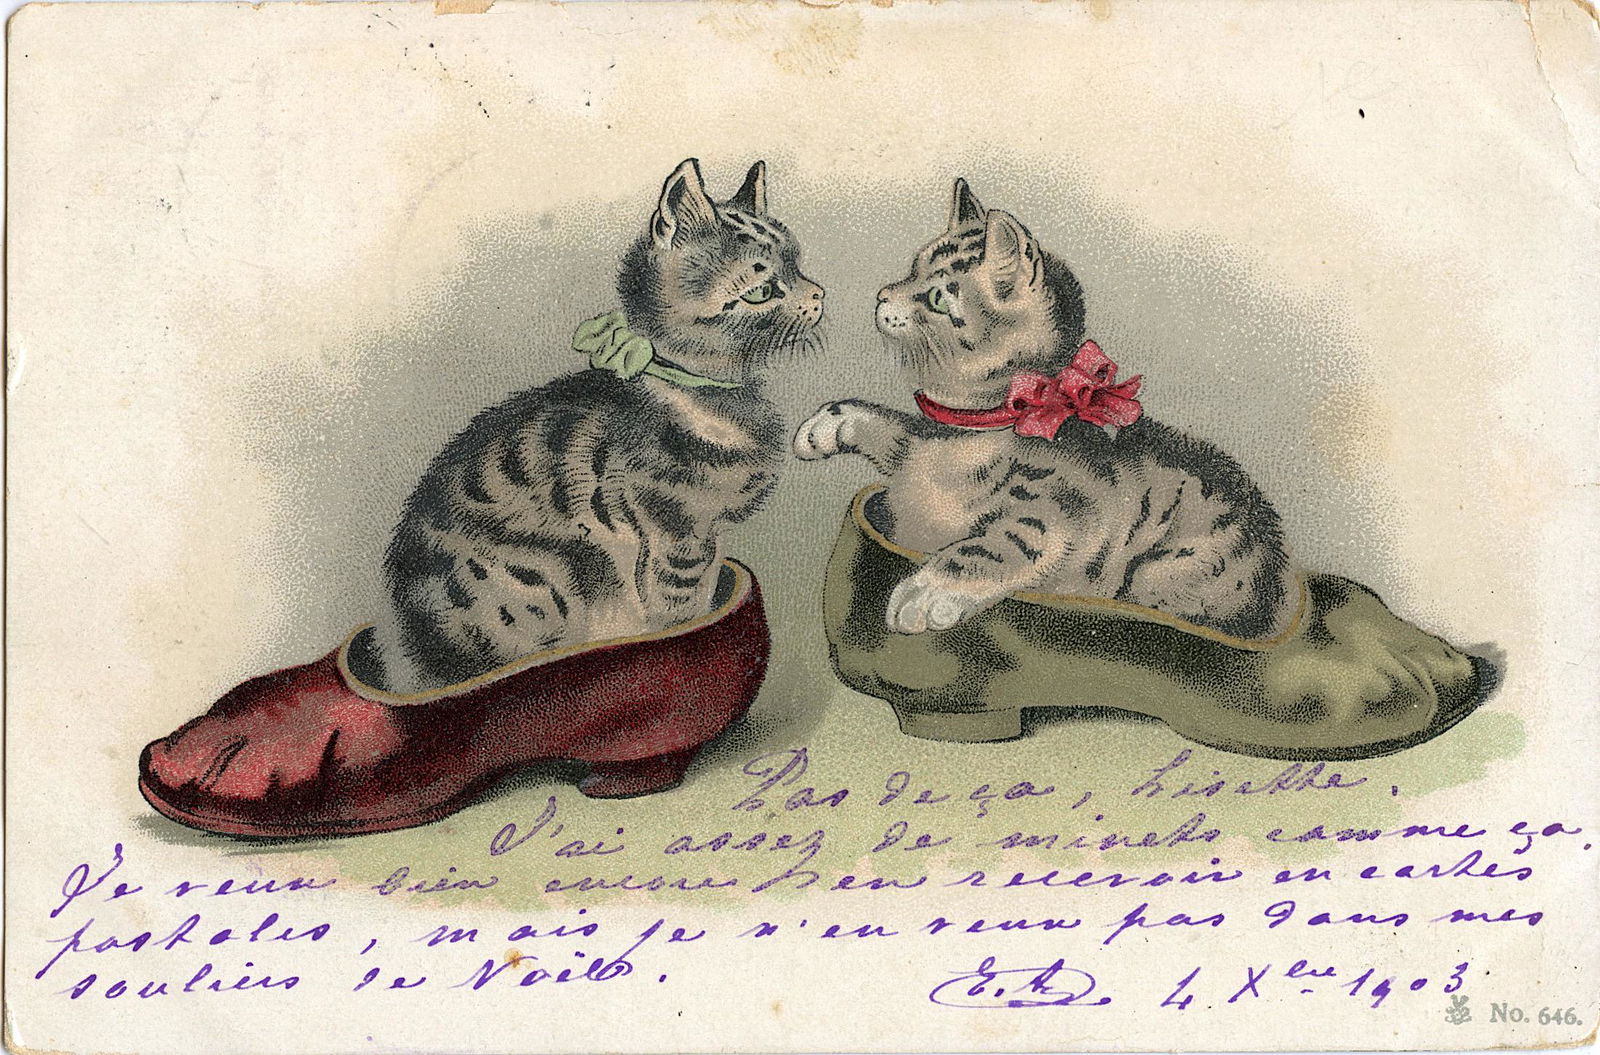 Pas de ça, Lisette.
J'ai assez de minets comme ça.
Je veux bien encore en recevoir en cartes
postales, mais je n'en veux pas dans mes
souliers de Noël.
E.A. 4 Xbre 1903
No. 646.